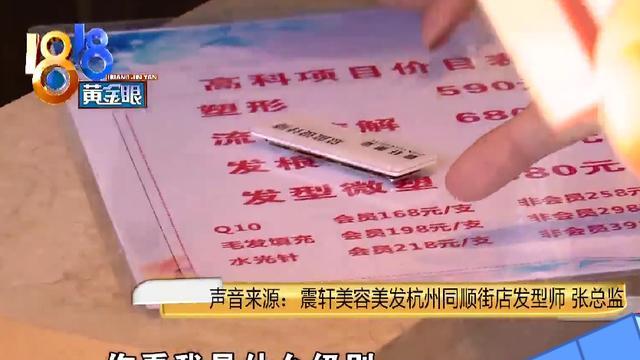 1818
黄金眼
HUANG JIN YAN
高科项目价目表
塑形 590
流 解 680
发根
发型微塑 80元
Q10 会员168元/支 非会员258
毛发填充 会员198元/支 非会员298
水光针 会员218元/支 非会员39
声音来源：震轩美容美发杭州同顺街店发型师 张总监
你看我是什么级别